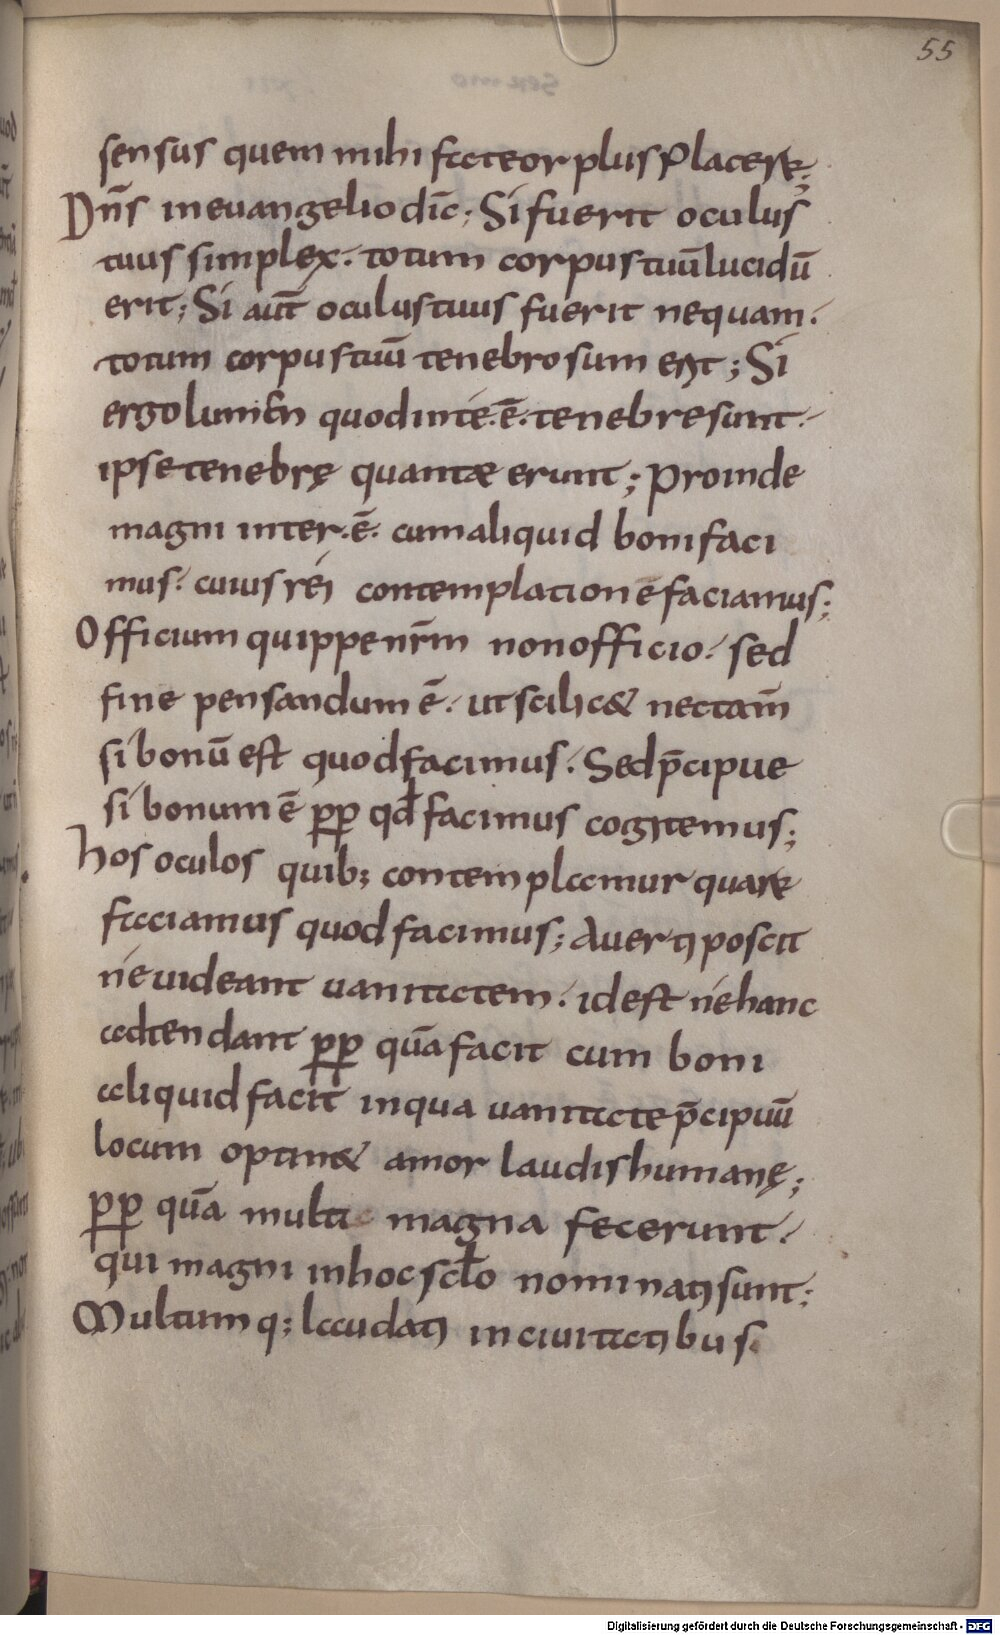 55
sensus quem mihi fateor plus placere;
Dn̄s in euangelio dic̄; Si fuerit oculus
tuus simplex. totum corpus tuū lucidū
erit; Si aut̄ oculus tuus fuerit nequam.
totum corpus tuū tenebrosum erit; Si
ergo lumen quod in te.ē. tenebre sunt.
ipse tenebrę quantae erunt; Proinde
magni inter.ē. cum aliquid boni faci
mus. cuius rei contemplatione faciamus;
Officium quippe nr̄m non officio. sed
fine pensandum ē. ut scilic& nec tam̄
si bonū est quod facimus. Sed p̄cipue
si bonum ē pp qđ facimus cogitemus;
hos oculos quib; contemplamur quare
faciamus quod facimus; Auerti poscit
ne uideant uanitatem. id est ne hanc
adtendant pp quā facit cum boni
aliquid facit in qua uanitate p̄cipuū
locum optin& amor laudis humanę;
pp quā multi magna fecerunt.
qui magni in hoc sclo nominati sunt;
Multumq; laudati in ciuitatibus
Digitalisierung gefördert durch die Deutsche Forschungsgemeinschaft - DFG